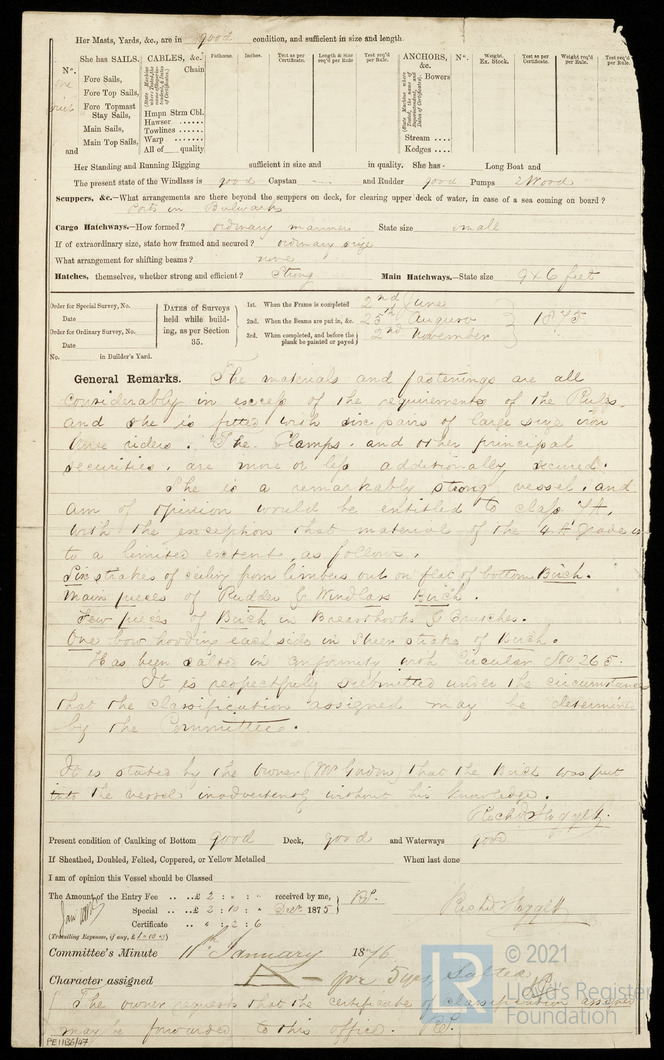 Her Masts, Yards, &c., are in good condition, and sufficient in size and length.
No. She has SAILS. CABLES, &c. Fathoms. Inches. Test as per Certificate. Length & Size req'd per Rule. Test req'd per Rule. ANCHORS, &c. No. Weight. Ex. Stock. Test as per Certificate. Weight req'd per Rule. Test req'd per Rule.
Fore Sails, Chain Bowers
Fore Top Sails,
Fore Topmast Stay Sails, Hmpn Strm Cbl.
Hawser
Main Sails, Towlines
Warp Stream
Main Top Sails, All of quality Kedges
and
Her Standing and Running Rigging sufficient in size and in quality. She has Long Boat and
The present state of the Windlass is good Capstan — and Rudder good Pumps 2 Wood
Scuppers, &c.—What arrangements are there beyond the scuppers on deck, for clearing upper deck of water, in case of a sea coming on board?
Ports in Bulwarks
Cargo Hatchways.—How formed? ordinary manner State size small
If of extraordinary size, state how framed and secured? ordinary size
What arrangement for shifting beams? none
Hatches, themselves, whether strong and efficient? Strong Main Hatchways.—State size 9 x 6 feet
Order for Special Survey, No.
Date
Order for Ordinary Survey, No.
Date
No. in Builder's Yard.
DATES of Surveys held while building, as per Section 35.
1st. When the Frame is completed 2nd June
2nd. When the Beams are put in, &c. 25th August 1875
3rd. When completed, and before the plank be painted or payed 2nd November
General Remarks. The materials and fastenings are all
considerably in excess of the requirements of the Rules
and she is fitted with six pairs of large size iron
knee riders. The Clamps and other principal
securities are more or less additionally secured.
She is a remarkably strong vessel and
am of opinion would be entitled to class 7A,
with the exception that material of the 4A grade is
to a limited extent as follows.
Six strakes of ceiling from limbers out on flat of bottom Birch.
Main pieces of Rudder & Windlass Birch.
Few pieces of Birch in Breasthooks & Crutches.
One bow hooding each side in Sheer strake of Birch.
Has been salted in conformity with Circular No 265.
It is respectfully submitted under the circumstances
that the classification assigned may be determined
by the Committee.
It is stated by the owner (Mr ) that the Birch was put
into the vessel inadvertently without his knowledge.
Present condition of Caulking of Bottom good Deck, good and Waterways good
If Sheathed, Doubled, Felted, Coppered, or Yellow Metalled When last done
I am of opinion this Vessel should be Classed
The Amount of the Entry Fee £ 2 : " : " received by me,
Special £ 2 : 10 : " Decr 1875
Certificate " : 2 : 6
(Travelling Expenses, if any, £ )
Committee's Minute 11th January 1876
Character assigned A — for 5 yrs, Salted
The owner requests that the certificate of classification assigned
may be forwarded to this office.
PE1136/47
© 2021
Lloyd's Register
Foundation
LR